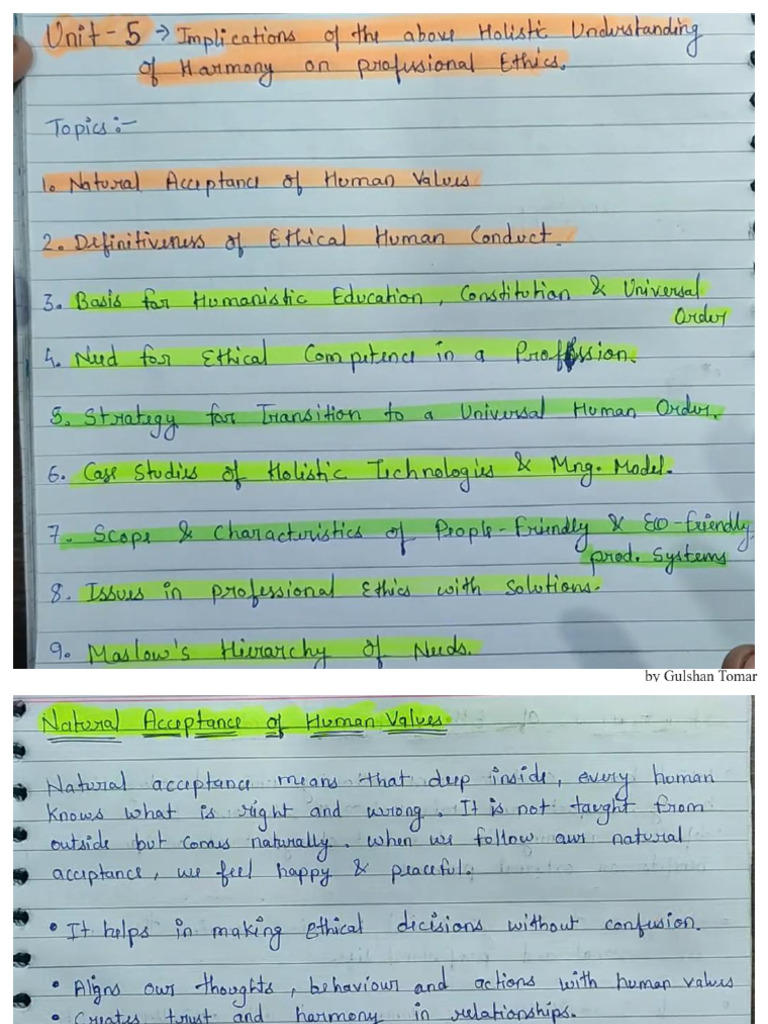 Unit-5 → Implications of the above Holistic Understanding
of Harmony on profusional Ethics.
Topics:-
1. Natural Acceptance of Human Values
2. Definitiveness of Ethical Human Conduct.
3. Basis for Humanistic Education, Constitution & Universal
Order
4. Need for Ethical Competence in a Profession.
5. Strategy for Transition to a Universal Human Order.
6. Case Studies of Holistic Technologies & Mng. Model.
7. Scope & Characteristics of People-Friendly & Eco-friendly
prod. Systems
8. Issues in professional Ethics with Solutions.
9. Maslow's Hierarchy of Needs.
by Gulshan Tomar
Natural Acceptance of Human Values
Natural acceptance means that deep inside, every human
knows what is right and wrong. It is not taught from
outside but comes naturally. when we follow our natural
acceptance, we feel happy & peaceful.
• It helps in making ethical decisions without confusion.
• Aligns our thoughts, behaviour and actions with human values
• Creates trust and harmony in relationships.